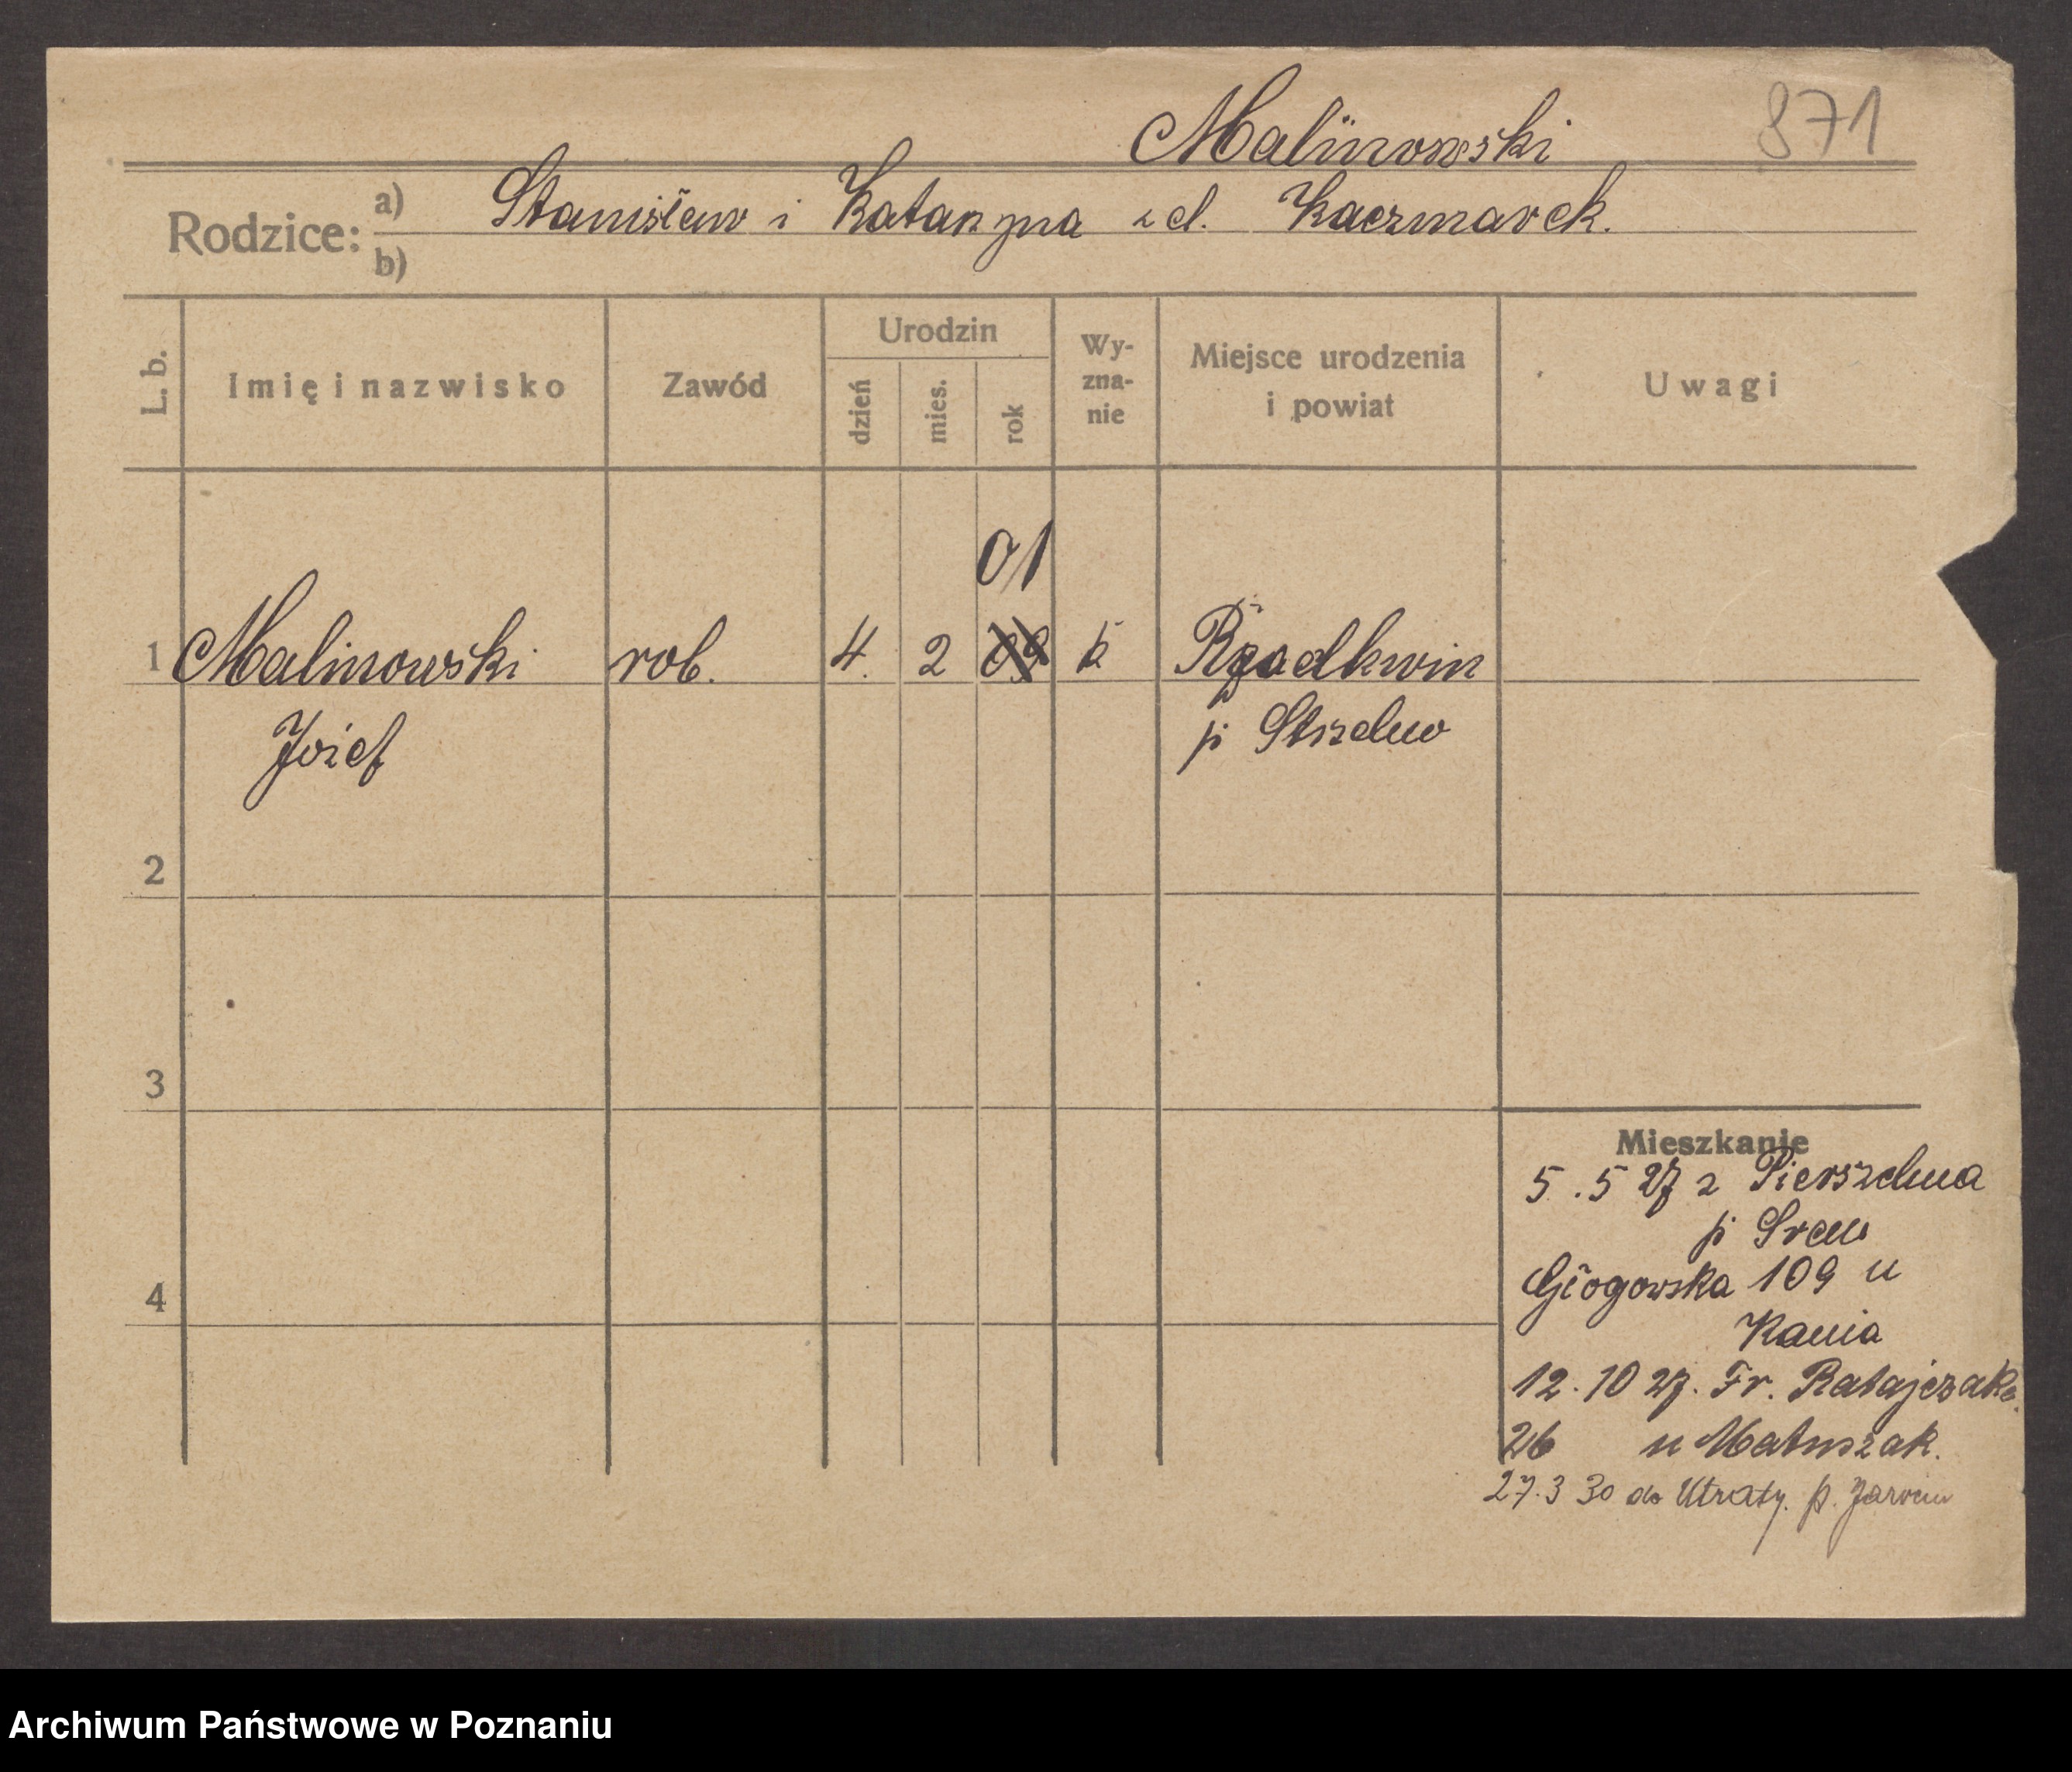 Malinowski 871
Rodzice: a) Stanisław i Katarzyna z d. Kaczmarek.
b)
L. b. Imię i nazwisko Zawód Urodzin dzień mies. rok Wy-zna-nie Miejsce urodzenia i powiat Uwagi
01
1 Malinowski rob. 4. 2 09 k Rządkwin
Józef p Strzelno
2
3
4
Mieszkanie
5.5 27 z Pierszchna
p Śrem
Głogowska 109 u
Kania
12.10 27. Fr. Ratajczaka
26 u Matuszak.
27.3 30 do Utraty. p. Jarocin
Archiwum Państwowe w Poznaniu